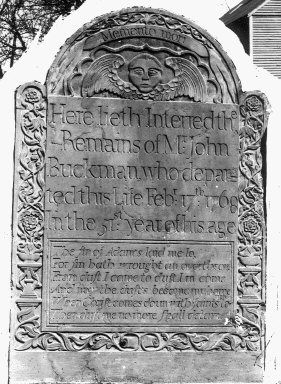 Memento mori
Here lieth Interred the
Remains of Mr John
Buckman who depar
ted this Life Feby 17th 1768
In the 51st year of his age
The sin of Adam laid me lo,
For sin hath wrought an overthrow
From dust I came to dust I'm come
And now the dust's become my
When Christ comes down with saints to
death me no more shall